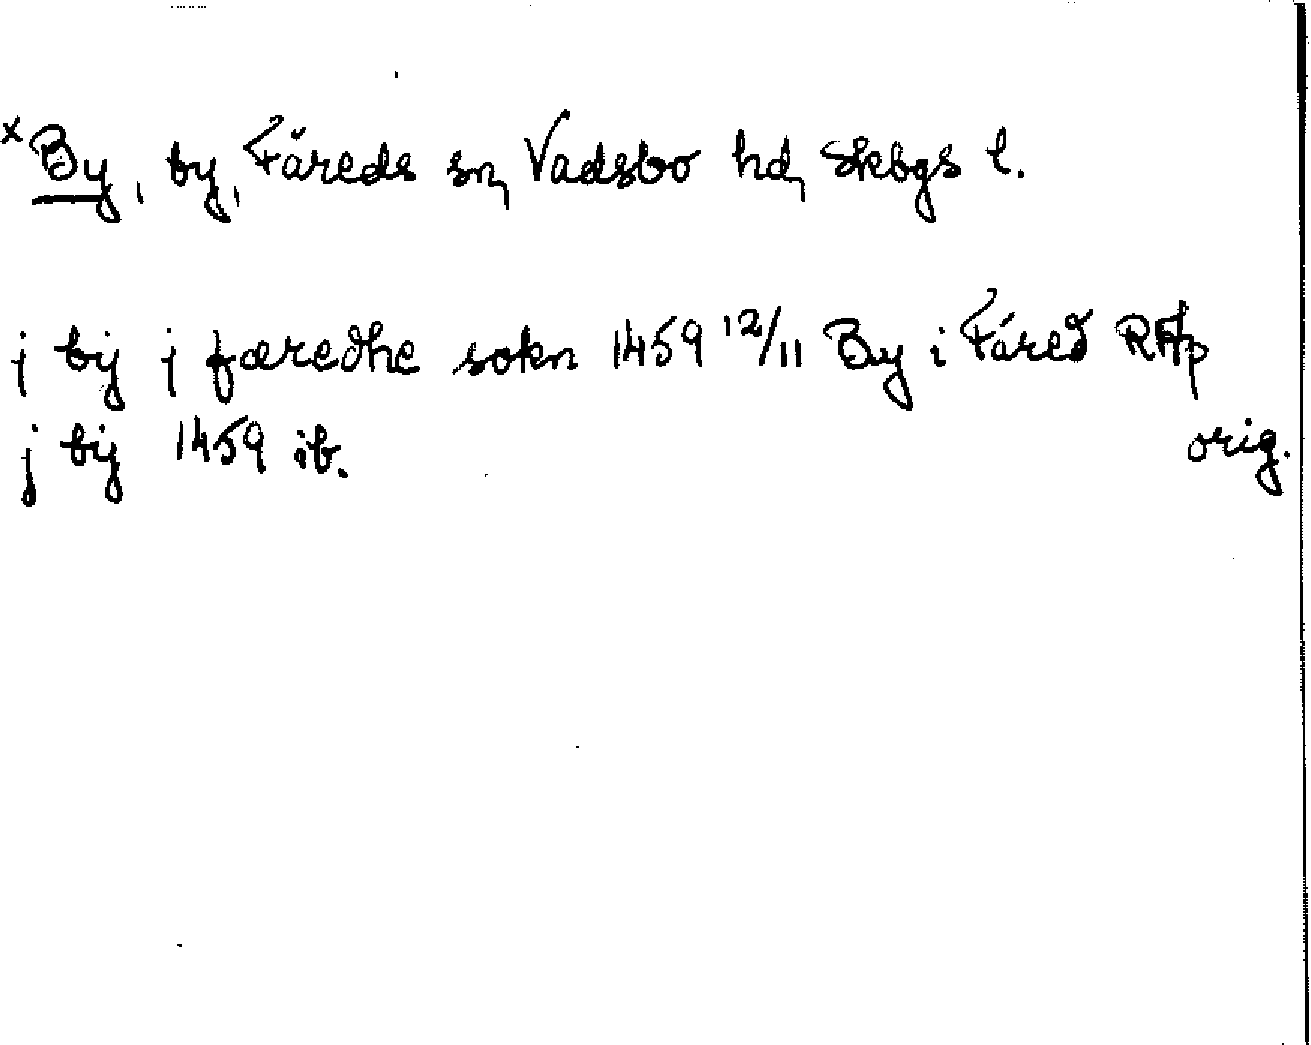 x By, by, Färeds sn, Vadsbo hd, Skbgs l.
j bij j færedhe sokn 1459 12/11 By i Färed RAp
orig.
j bij 1459 ib.